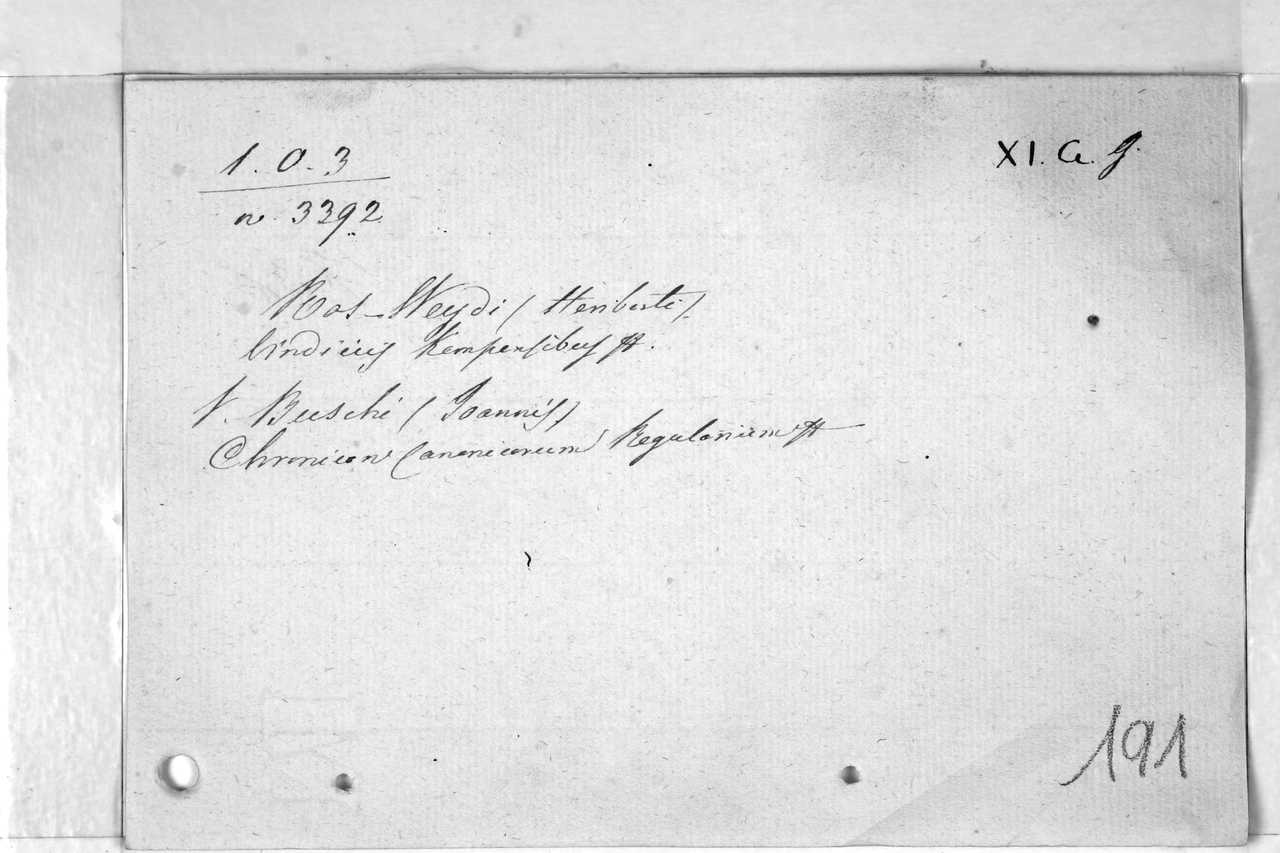 1. O. 3
XI. G. J.
n. 3392
Ros-Weydi (Heriberti)
Vindiciis Kempensibus
V. Buschi (Joannis)
Chronicon Canonicorum Regularium
191